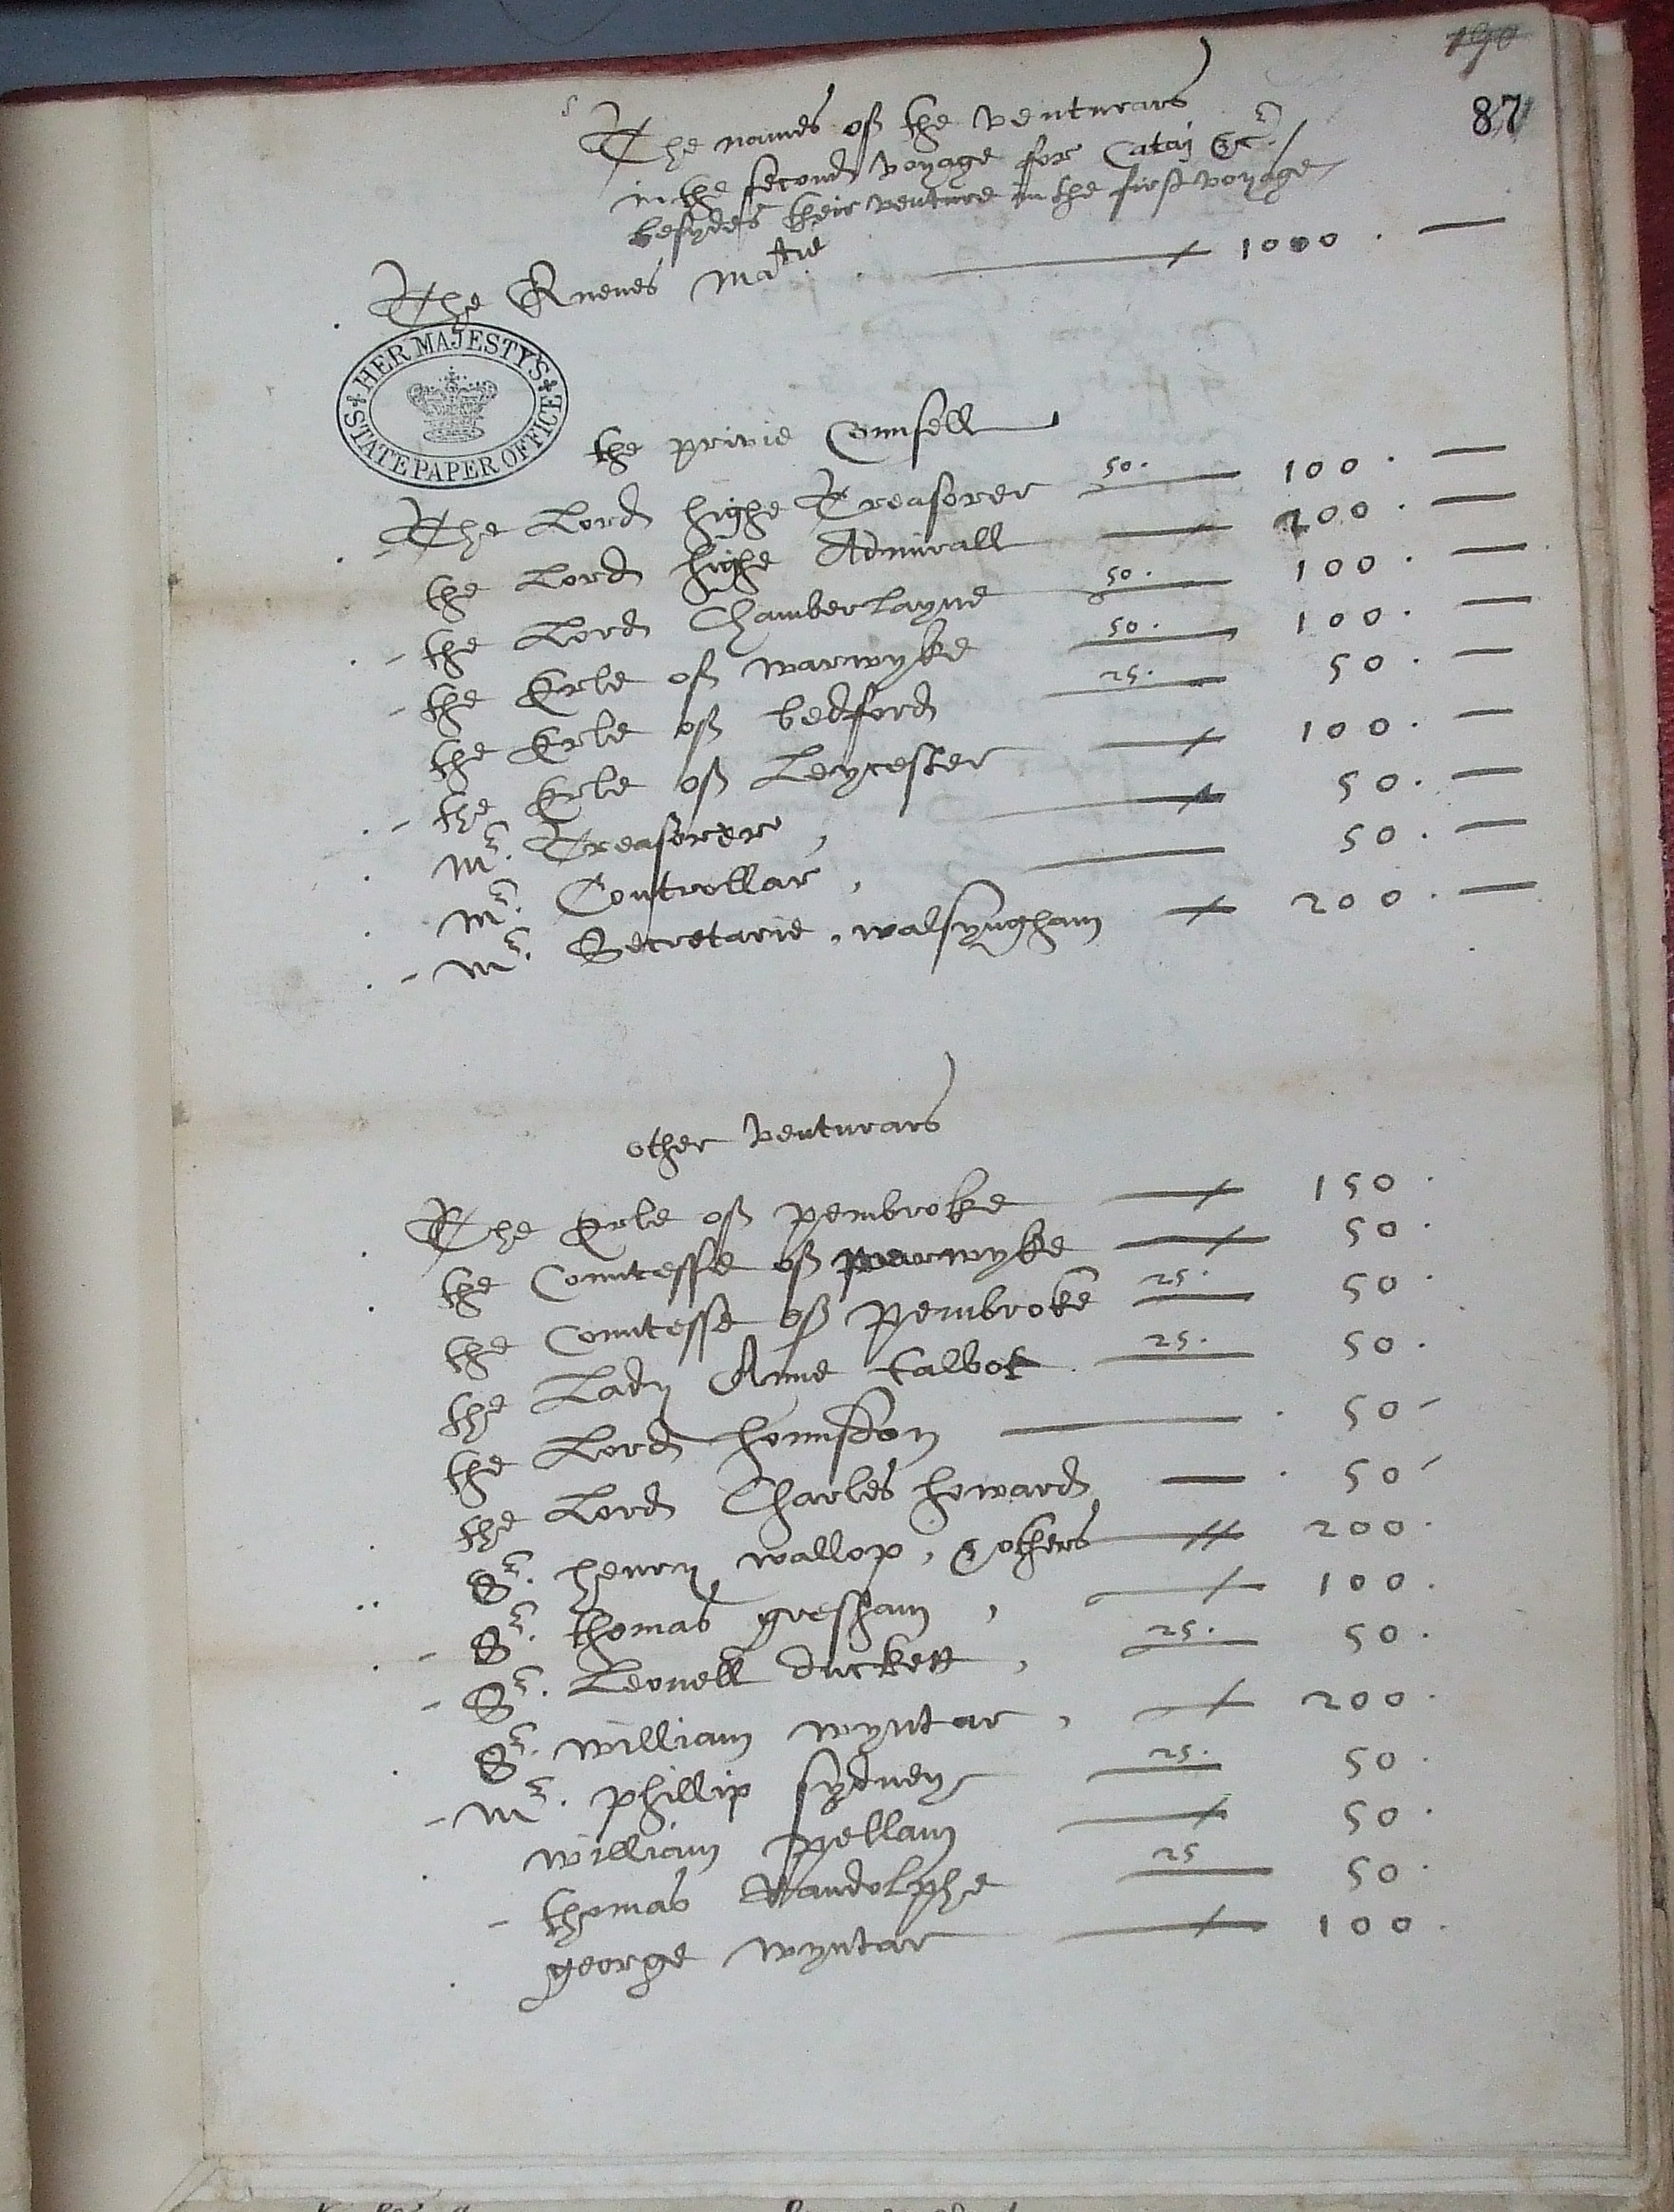 190
87
The names off the venturars
in the second voyage for Catay &c.
besydes their venture in the first voyage
The Quenes Matie 1000.
HER MAJESTY'S STATE PAPER OFFICE
the privie Counsell
The Lord highe Treasorer 50. 100.
the Lord highe Admirall 200.
the Lord Chamberlayne 50. 100.
the Erle off warwyke 50. 100.
the Erle off bedford 25. 50.
the Erle off Leycester 100.
Mr. Treasorer, 50.
Mr. Controllar, 50.
Mr. Secretarie, walsyngham 200.
other venturars
The Erle off pembroke 150.
the Countesse off warwyke 50.
the Countesse off Pembroke 25. 50.
the Lady Anne talbot 25. 50.
the Lord hounsdon 50
the Lord Charles howard 50
Sr. henry wallop, & others 200.
Sr. thomas gresham, 100.
Sr. Leonell duckett, 25. 50.
Sr. william wyntar, 200.
Mr. phillip sydney 25. 50.
william pellam 50.
thomas Randolphe 25 50.
george wyntar 100.